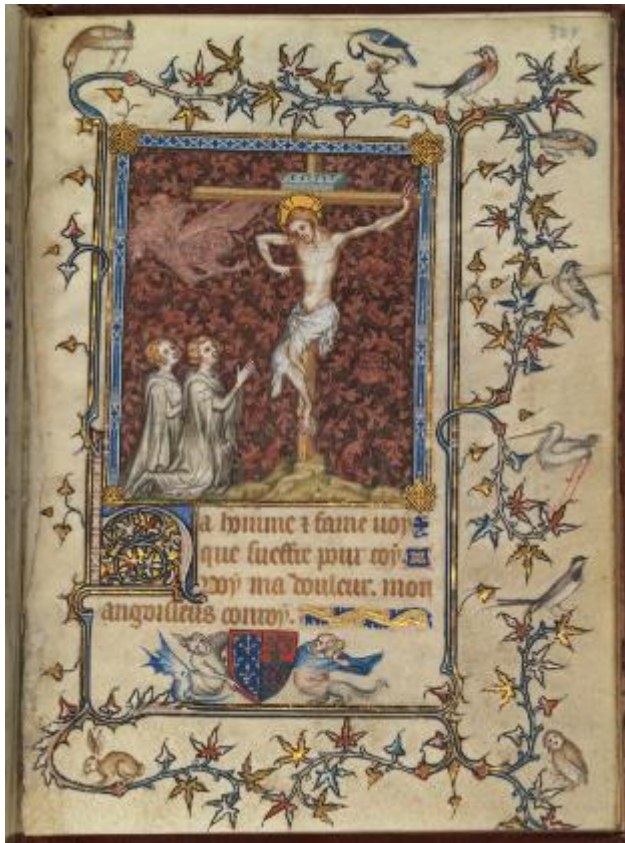 Ha homme ⁊ fame voy
que sueffre pour toy.
voy ma douleur. mon
angoisseus conroy.